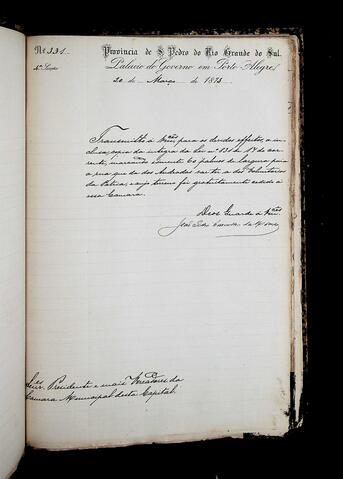 Nº 331.
4ª Secção
Provincia de S. Pedro do Rio Grande do Sul.
Palacio do Governo em Porto Alegre,
20 de Março de 1873
Transmitto á Vmcês, para os devidos effeitos, a in-
clusa copia da integra da Lei nº 831 de 17 do cor-
rente, marcando somente 60 palmos de largura para
a rua que da dos Andradas vai ter a dos Voluntarios
da Patria, e cujo terreno foi gratuitamente cedido a
essa Camara.
Deos Guarde a Vmcês.
José Pedro
Snrs. Presidente e mais Vereadores da
Camara Municipal desta Capital.